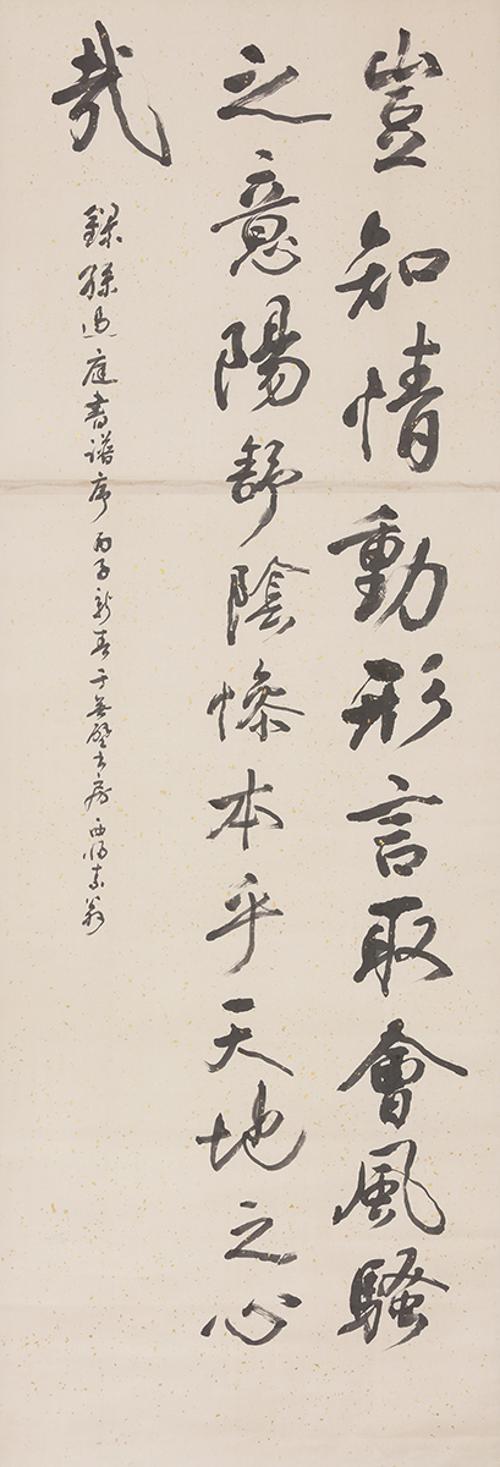 豈知情動形言取會風騷
之意陽舒陰慘本乎天地之心
哉
錄孫過庭書譜序丙子新春于無盡書房西